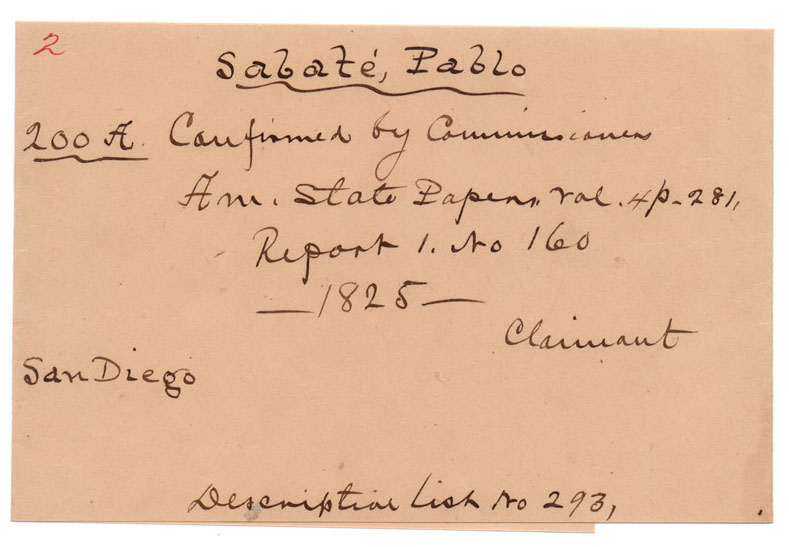 2
Sabaté, Pablo
200 A. Confirmed by Commissioners
Am. State Papers, vol. 4 p. 281,
Report 1. No 160
—1825—
Claimant
San Diego
Descriptive List No 293,